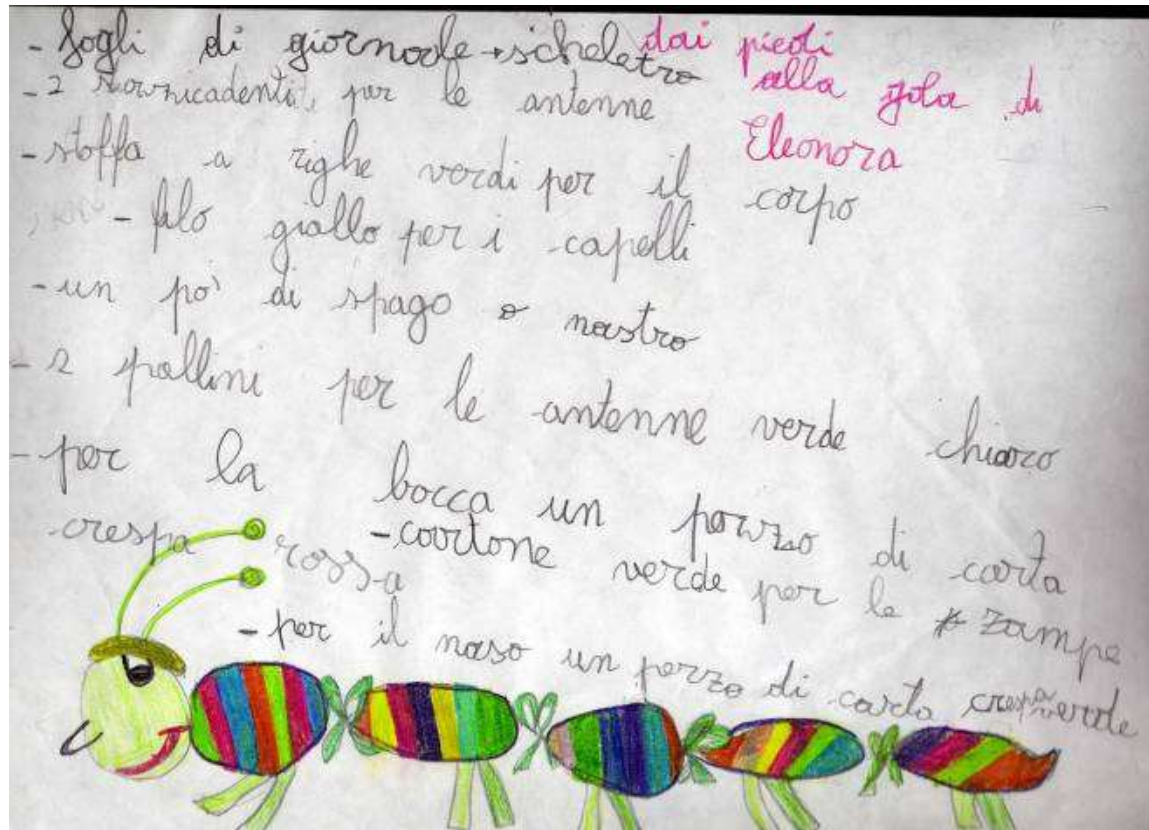 - fogli di giornale → scheletro dai piedi
alla gola di
Eleonora
- 2 stuzzicadenti, per le antenne
- stoffa a righe verdi per il corpo
- filo giallo per i capelli
- un po' di spago o nastro
- 2 pallini per le antenne verde chiaro
- per la bocca un pezzo di carta
crespa rossa
- cartone verde per le zampe
- per il naso un pezzo di carta crespa verde